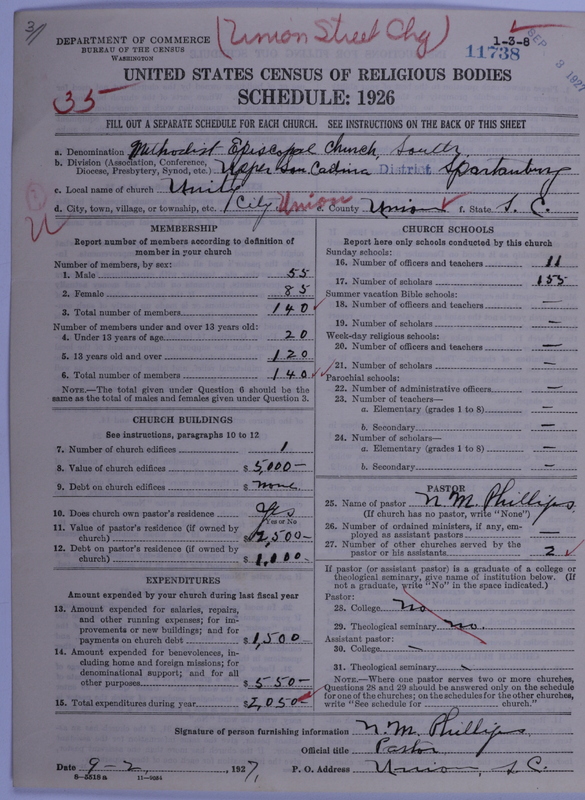 3/
(Union Street Chg)
1-3-8
DEPARTMENT OF COMMERCE
BUREAU OF THE CENSUS
WASHINGTON
11738
SEP 3 1927
UNITED STATES CENSUS OF RELIGIOUS BODIES
35
SCHEDULE: 1926
FILL OUT A SEPARATE SCHEDULE FOR EACH CHURCH. SEE INSTRUCTIONS ON THE BACK OF THIS SHEET
a. Denomination Methodist Episcopal Church, South
b. Division (Association, Conference, Diocese, Presbytery, Synod, etc.) Upper So. Carolina District Spartanburg
c. Local name of church
d. City, town, village, or township, etc. City Union e. County Union f. State S. C.
MEMBERSHIP
Report number of members according to definition of
member in your church
Number of members, by sex:
1. Male 55
2. Female 85
3. Total number of members 140
Number of members under and over 13 years old:
4. Under 13 years of age 20
5. 13 years old and over 120
6. Total number of members 140
NOTE.—The total given under Question 6 should be
same as the total of males and females given under Question 3.
CHURCH BUILDINGS
See instructions, paragraphs 10 to 12
7. Number of church edifices 1
8. Value of church edifices $ 5,000-
9. Debt on church edifices $ none
10. Does church own pastor's residence yes
Yes or No
11. Value of pastor's residence (if owned by
church) $ 2,500-
12. Debt on pastor's residence (if owned by
church) $ 1,000-
EXPENDITURES
Amount expended by your church during last fiscal year
13. Amount expended for salaries, repairs,
and other running expenses; for im-
provements or new buildings; and for
payments on church debt $ 1,500
14. Amount expended for benevolences, in-
cluding home and foreign missions; for
denominational support; and for all
other purposes $ 550-
15. Total expenditures during year $ 2,050-
CHURCH SCHOOLS
Report here only schools conducted by this church
Sunday schools:
16. Number of officers and teachers 11
17. Number of scholars 155
Summer vacation Bible schools:
18. Number of officers and teachers —
19. Number of scholars —
Week-day religious schools:
20. Number of officers and teachers —
21. Number of scholars —
Parochial schools:
22. Number of administrative officers —
23. Number of teachers—
a. Elementary (grades 1 to 8) —
b. Secondary —
24. Number of scholars—
a. Elementary (grades 1 to 8) —
b. Secondary —
PASTOR
25. Name of pastor N. M. Phillips
(If church has no pastor, write "None")
26. Number of ordained ministers, if any, em-
ployed as assistant pastors —
27. Number of other churches served by the
pastor or his assistants 2
If pastor (or assistant pastor) is a graduate of a college or
theological seminary, give name of institution below. (If
not a graduate, write "No" in the space indicated.)
Pastor:
28. College No
29. Theological seminary No.
Assistant pastor:
30. College —
31. Theological seminary —
NOTE.—Where one pastor serves two or more churches,
Questions 28 and 29 should be answered only on the schedule
for one of the churches; on the schedules for the other churches,
write "See schedule for church."
Signature of person furnishing information N. M. Phillips
Official title Pastor
Date 9-2, 1927, P. O. Address Union, S. C.
8-5518 a 11-9034